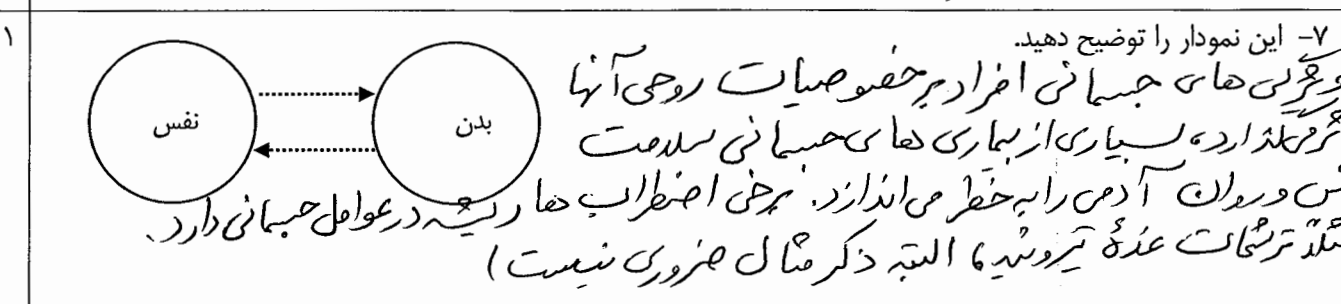 ۷- این نمودار را توضیح دهید.
۱
نفس
بدن
ویژگی های جسمانی افراد بر خصوصیات روحی آنها
می گذارد، بسیاری از بیماری های جسمانی سلامت
و روان آدمی را به خطر می اندازد. برخی اضطراب ها ریشه در عوامل جسمانی دارد.
ترشحات غدهٔ تیروئید، البته ذکر مثال ضروری نیست)